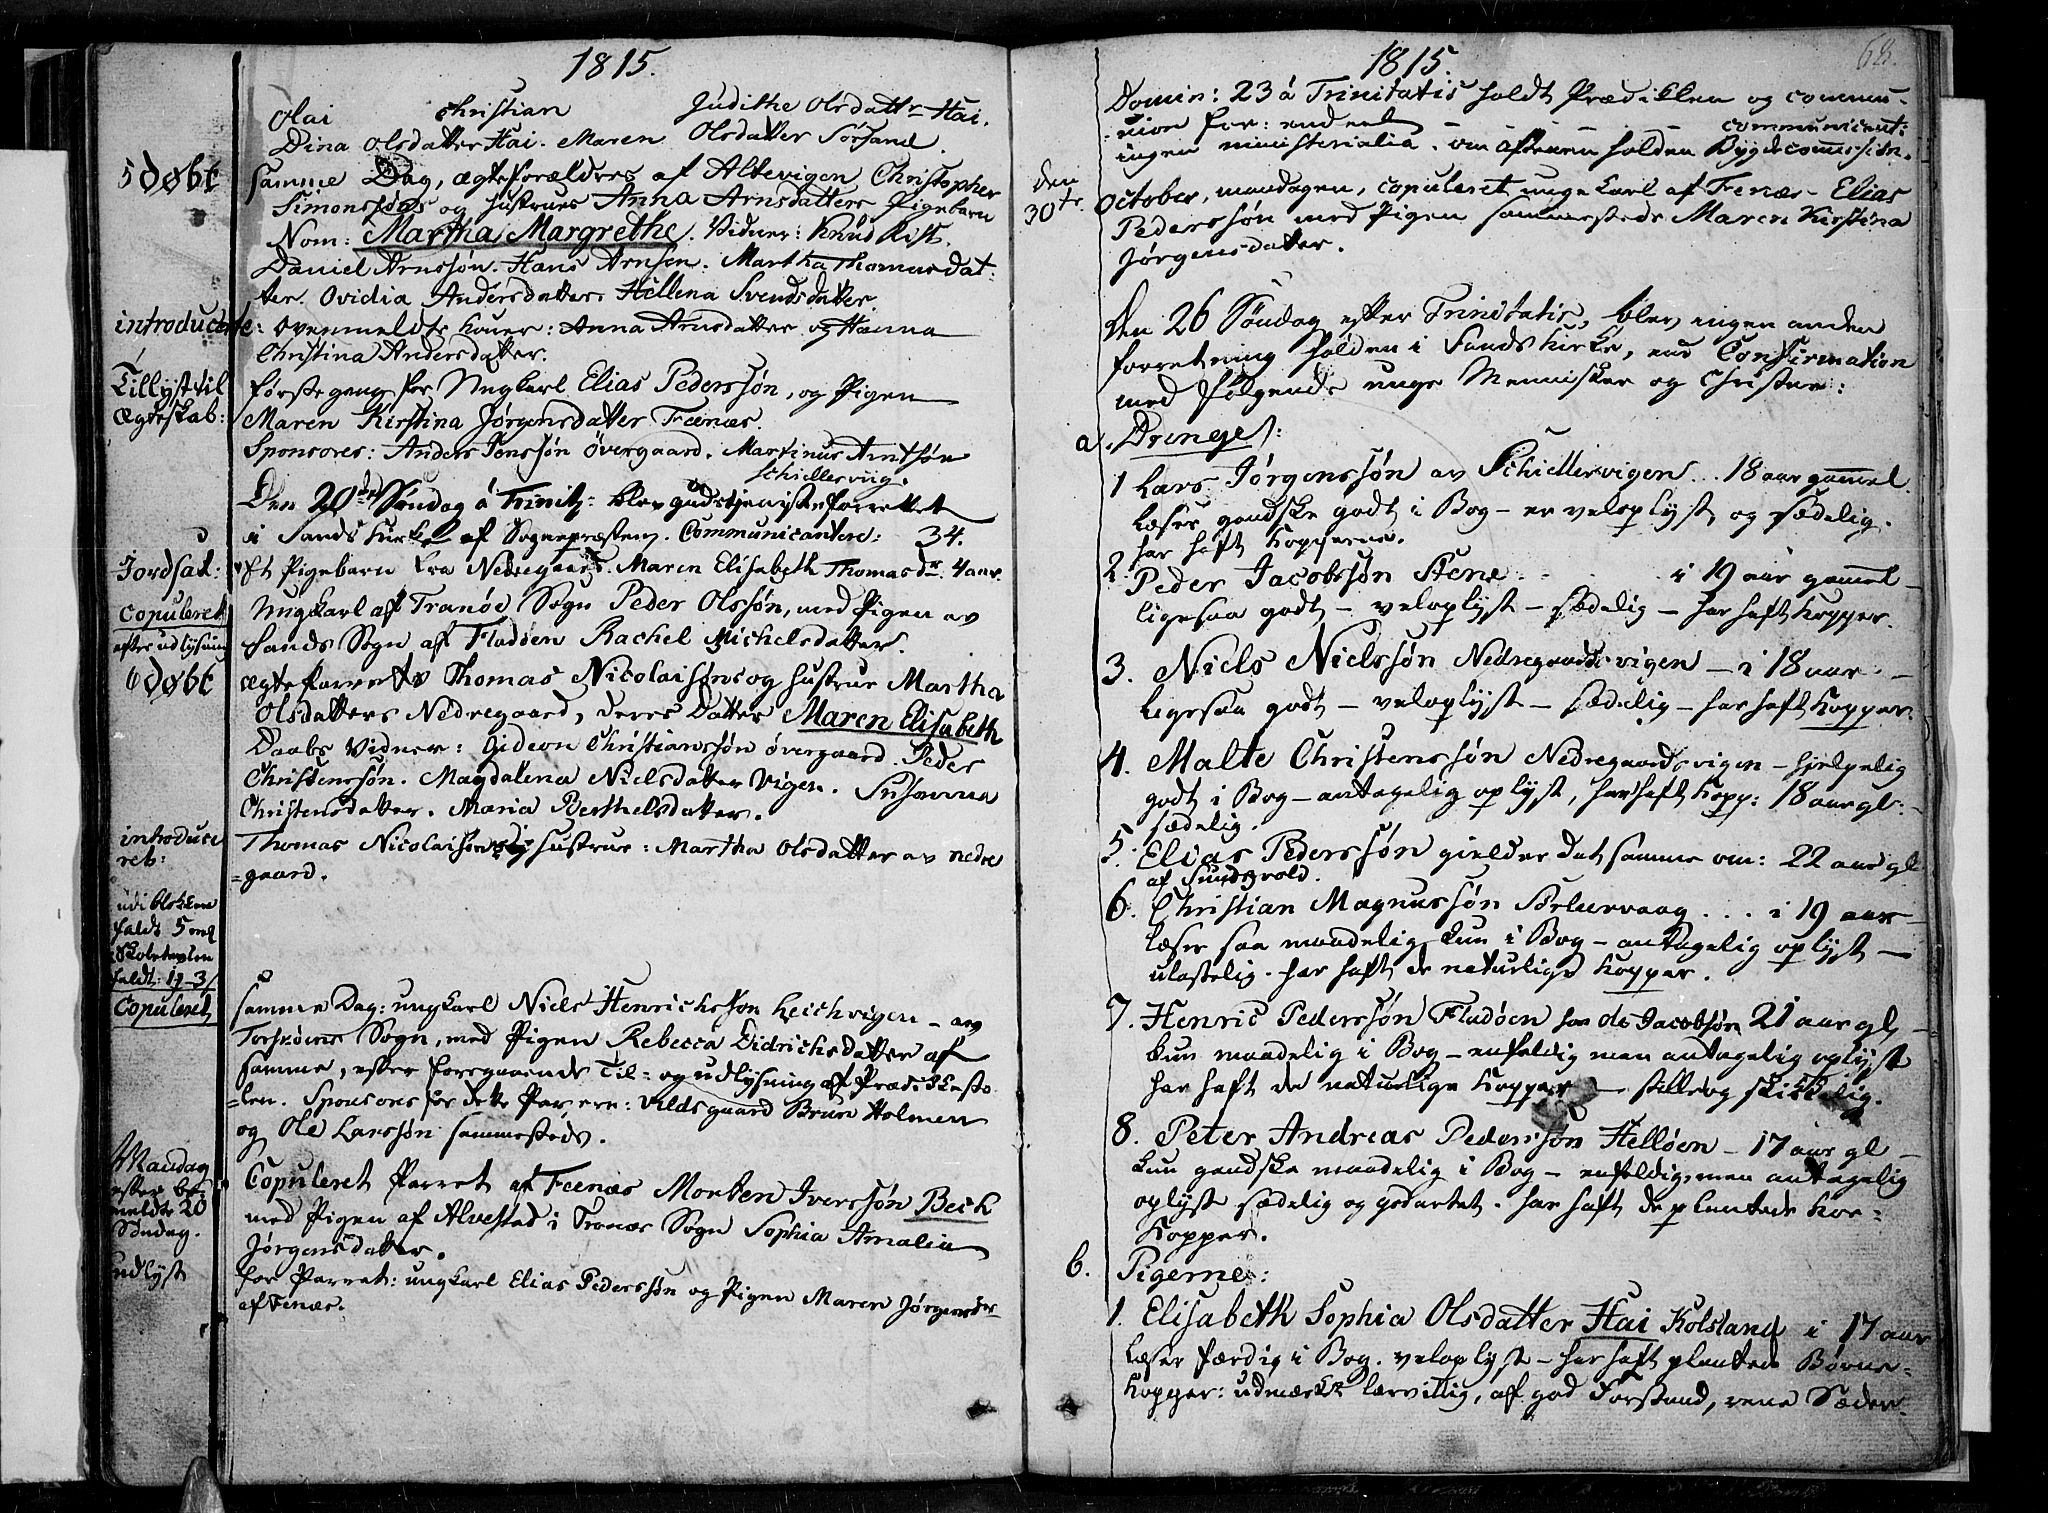 1815.
Olai Christian Judithe Olsdattr Hai.
Dina Olsdatter Hai. Maren Olsdatter Sørsand.
5 døbt
samme Dag, ægteforældres af Altevigen Christopher
Simonssøns og Hustrues Anna Arnsdatters Pigebarn
Nom: Martha Margrethe. Vidner: Knud Rist.
Daniel Arnssøn. Hans Arnsen. Martha Thomasdat-
ter. Ovidia Andersdatter. Hellena Svendsdatter.
introducerte: ovenmeldte Koner: Anna Arnsdatter og Hanna
Christina Andersdatter.
Tillyst til
Ægteskab:
første gang for Ungkarl Elias Pederssøn, og Pigen
Maren Kirstina Jørgensdatter Feenæs.
Sponsores: Anders Jenssøn Övergaard. Martinus Arntsøn
Schiellerviig.
Den 20de Søndag á Trinit: blev gudstjeniste forrettet
i Sands Kirke af Sognepræsten. Communicantere: 34.
Jordfæst:
Et Pigebarn fra Nedregaard. Maren Elisabeth Thomasdr. 4 aar.
Copuleret
efter udlysning
Ungkarl af Tranöe Sogn Peder Olssøn, med Pigen av
Sands Sogn af Fladöen Rachel Michelsdatter.
6 døbt
ægteparrets Thomas Nicolaisøns og Hustrue Martha
Olsdatters Nedregaard, deres Datter Maren Elisabeth
Daabs Vidner: Gideon Christianssøn övergaard. Peder
Christenssøn. Magdalena Nielsdatter Vigen. Susanna
Christensdatter. Maria Berthelsdatter.
introduce
ret:
Thomas Nicolaisøns Hustrue: Martha Olsdatter av nedre
=gaard.
udi blokkene
faldt 5
faldt: 1 3
Copuleret
samme Dag: ungkarl Niels Henrichssøn Leichvigen - av
Torsköens Sogn, med Pigen Rebecca Didrichsdatter af
samme, efter foregaaende Til- og udlysning af Prædikesto
=len. Sponsores for dette Par, ere: Vildsgaard Bruun Holmen
og Ole Larssøn sammesteds.
Mandag
efter be-
meldte 20
Søndag.
Copuleret Parret af Feenæs Morten Iverssøn Bech
med Pigen af Alvestad i Tranöes Sogn Sophia Amalia
Jørgensdatter.
udlyst
for Parret: ungkarl Elias Pederssøn og Pigen Maren Jørgensdr
af Fenæs.
1815.
68.
Domin: 23 á Trinitatis holdt Prædiken og commu-
-nion for: endeel communicent:
ingen ministerialia. om aftenen holden Bygdecommission.
den
30te
October, mandagen, copuleret unge Karl af Fenæs - Elias
Pederssøn med Pigen sammesteds Maren Kirstina
Jørgensdatter.
Den 26 Söndag efter Trinitatis, blev ingen anden
forretning holden i Sands Kirke, end Confirmation
med følgende unge Mennisker og Christne:
a. Drenge:
1 Lars Jørgenssøn av Schiellervigen... 18 aar gammel.
læser gandske godt i Bog - er veloplyst, og sædelig.
har haft Kopperne.
2. Peder Jacobssøn Stene . . . i 19 aar gammel -
ligesaa godt - veloplyst - sædelig - har haft Kopper.
3. Niels Nielssøn Nedregaardsvigen - i 18 aar. -
ligesaa godt - veloplyst - sædelig - har haft Kopper.
4. Malte Christenssøn Nedregaardsvigen - hjelpelig
godt i Bog - antagelig oplyst, har haft Kopp: 18 aar gl: -
sædelig.
5. Elias Pederssøn gielder det samme om: 22 aar gl
af Sundsvold.
6. Christian Magnussøn Sørkervaag . . . i 19 aar
læser saa maadelig kun i Bog - antagelig oplyst -
ulastelig. har haft de naturlige Kopper.
7. Henric Pederssøn Fladöen hos Jacobsøn 21 aar gl -
kun maadelig i Bog - enfoldig men antagelig oplyst
har haft de naturlige Kopper - stille og skikkelig.
8. Peter Andreas Pederssøn Hellöen - 17 aar gl -
kun gandske maadelig i Bog - enfoldig, men antagelig
oplyst sædelig og godartet. har haft de plantede Koe-
Kopper.
b. Pigerne:
1. Elisabeth Sophia Olsdatter Hai Kolsland i 17 aar
læser færdig i Bog. veloplyst - har haft plantede Börne-
Kopper: udmærket lærvillig, af god Forstand, rene Sæder.